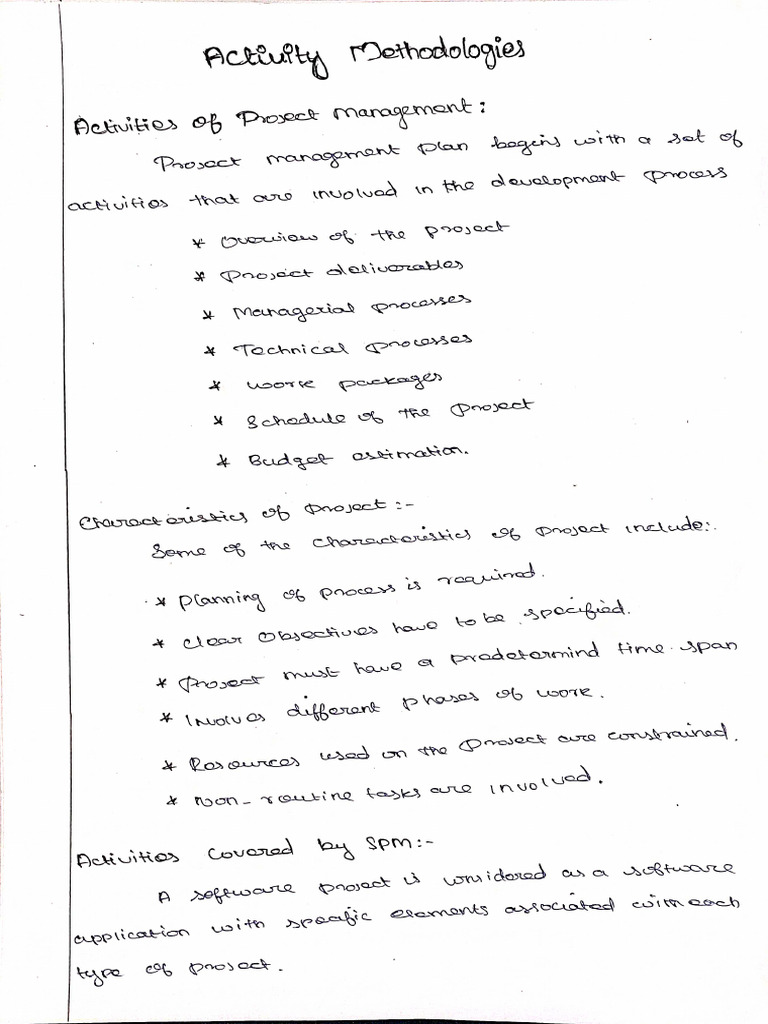 Activity Methodologies
Activities of Project Management:
Project management plan begins with a set of
activities that are involved in the development process
* Overview of the project
* Project deliverables
* Managerial processes
* Technical processes
* Work packages
* Schedule of the Project
* Budget estimation.
Characteristics of Project:-
Some of the characteristics of project include:.
* Planning of process is required.
* Clear Objectives have to be specified.
* Project must have a predetermind time span
* Involves different phases of work.
* Resources used on the Project are constrained.
* Non-routine tasks are involved.
Activities Covered by SPM:-
A software project is considered as a software
application with specific elements associated with each
type of project.